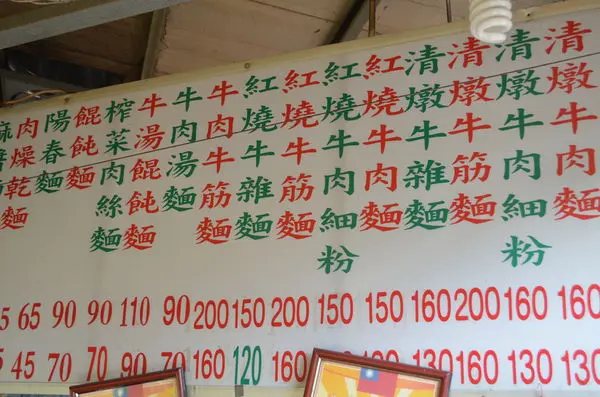 清燉牛肉麵
清燉牛肉細粉
清燉牛筋麵
清燉牛雜麵
紅燒牛肉麵
紅燒牛肉細粉
紅燒牛筋麵
紅燒牛雜麵
牛肉牛筋麵
牛肉湯麵
牛湯餛飩麵
榨菜肉絲麵
餛飩麵
陽春麵
肉燥乾麵
65 90 90 110 90 200 150 200 150 150 160 200 160 160
45 70 70 90 70 160 120 160 130 160 130 130